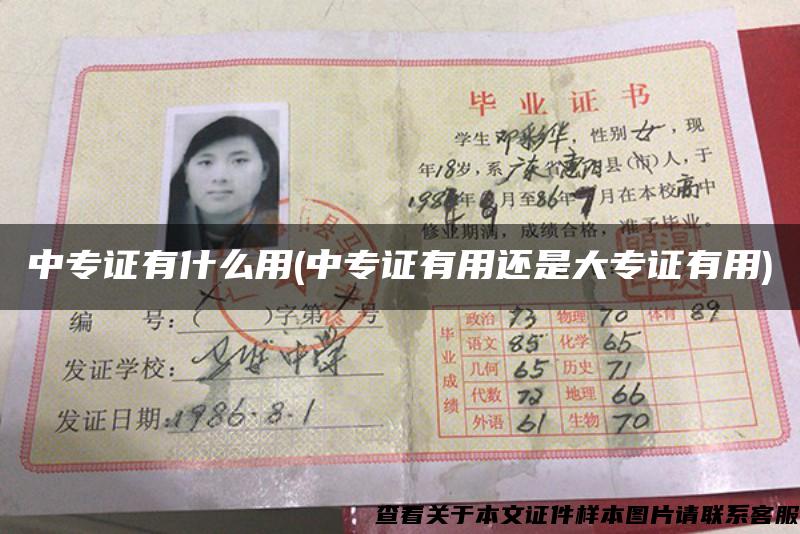 毕业证书
学生邓彩华，性别女，现
年18岁，系广东省惠阳县（市）人，于
月至86年7月在本校高中
修业期满，成绩合格，准予毕业。
中专证有什么用(中专证有用还是大专证有用)
编 号：( )字第 号
发证学校： 中学
发证日期：1986.8.1
毕业成绩
政治 73 物理 70 体育 89
语文 85 化学 65
几何 65 历史 71
代数 72 地理 66
外语 61 生物 70
查看关于本文证件样本图片请联系客服